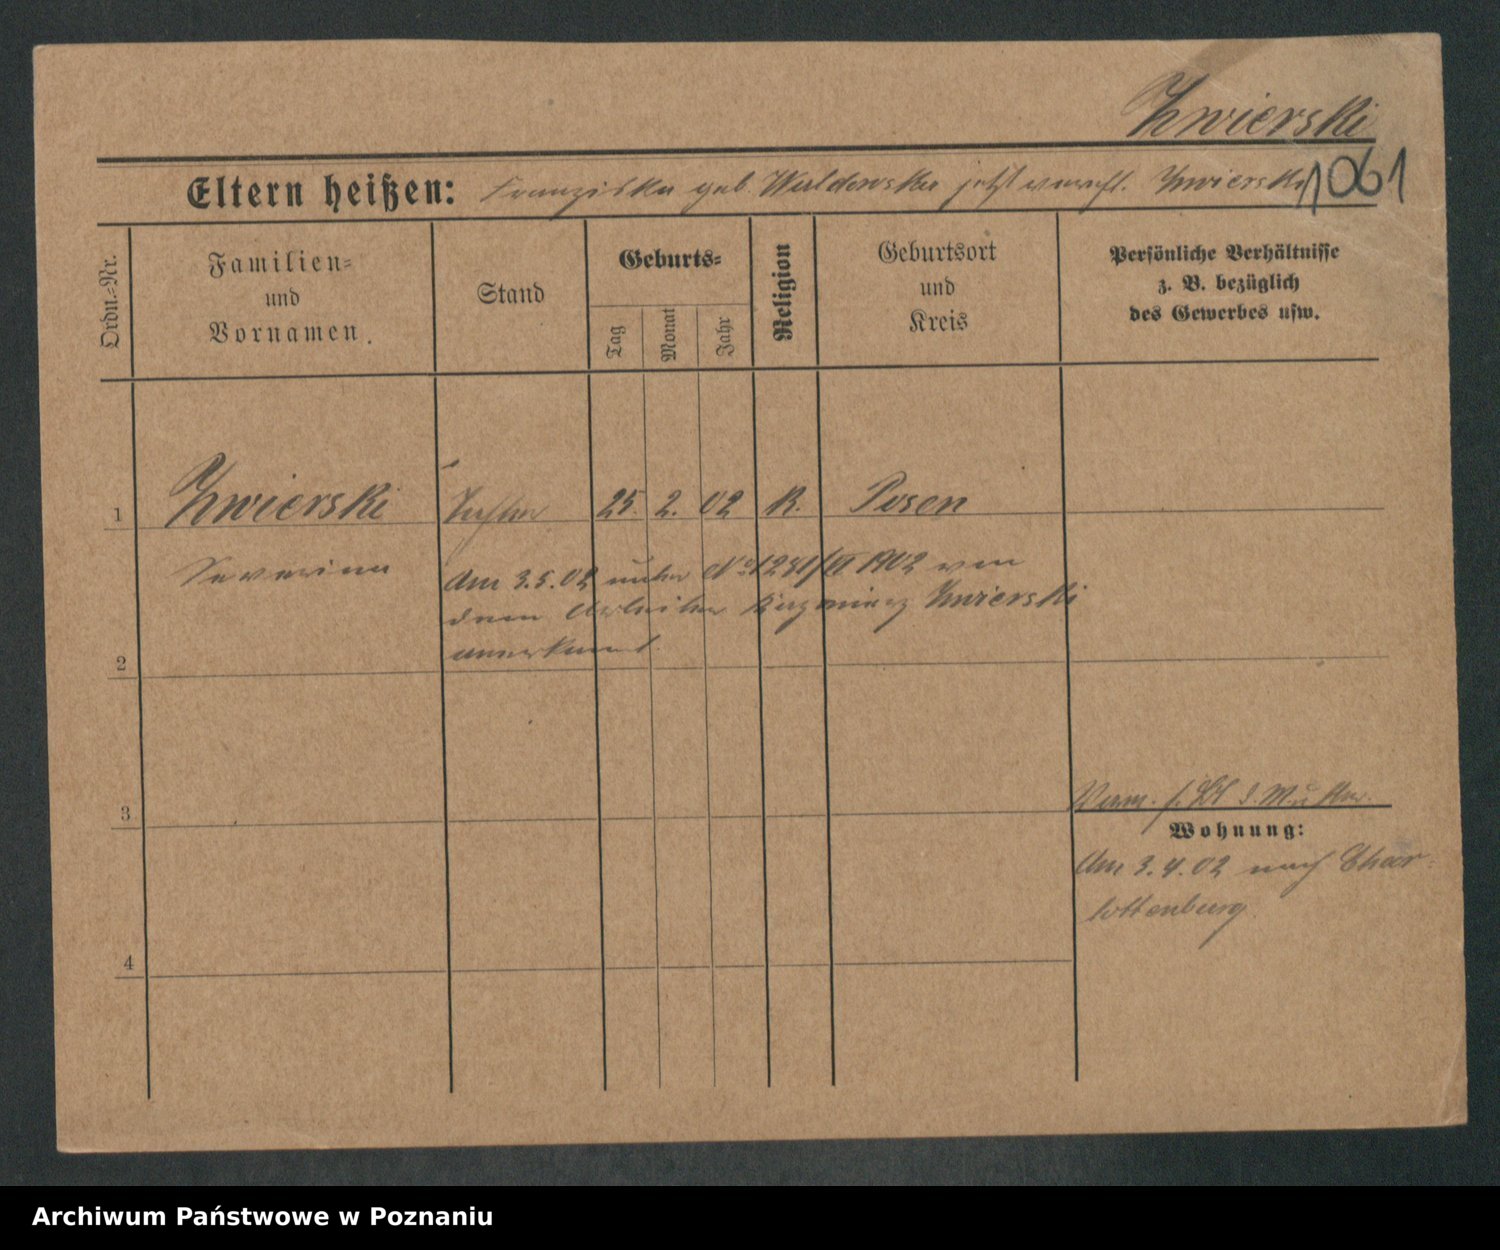 Zwierski
Eltern heißen: Franziska geb. Waldowska jetzt verehl. Zwierski
1061
Ordn.-Nr.
Familien-
und
Vornamen.
Stand
Geburts-
Tag
Monat
Jahr
Religion
Geburtsort
und
Kreis
Persönliche Verhältnisse
z. B. bezüglich
des Gewerbes usw.
1 Zwierski Tochter 25. 2. 02 K. Posen
Severina
Am 3.5.02 unter No 1281/VI 1902 von
dem Arbeiter Kazmierz Zwierski
anerkannt.
2
3
Verm. s. Bl. d. Mutter.
Wohnung:
Am 3.4.02 nach Char-
lottenburg.
4
Archiwum Państwowe w Poznaniu